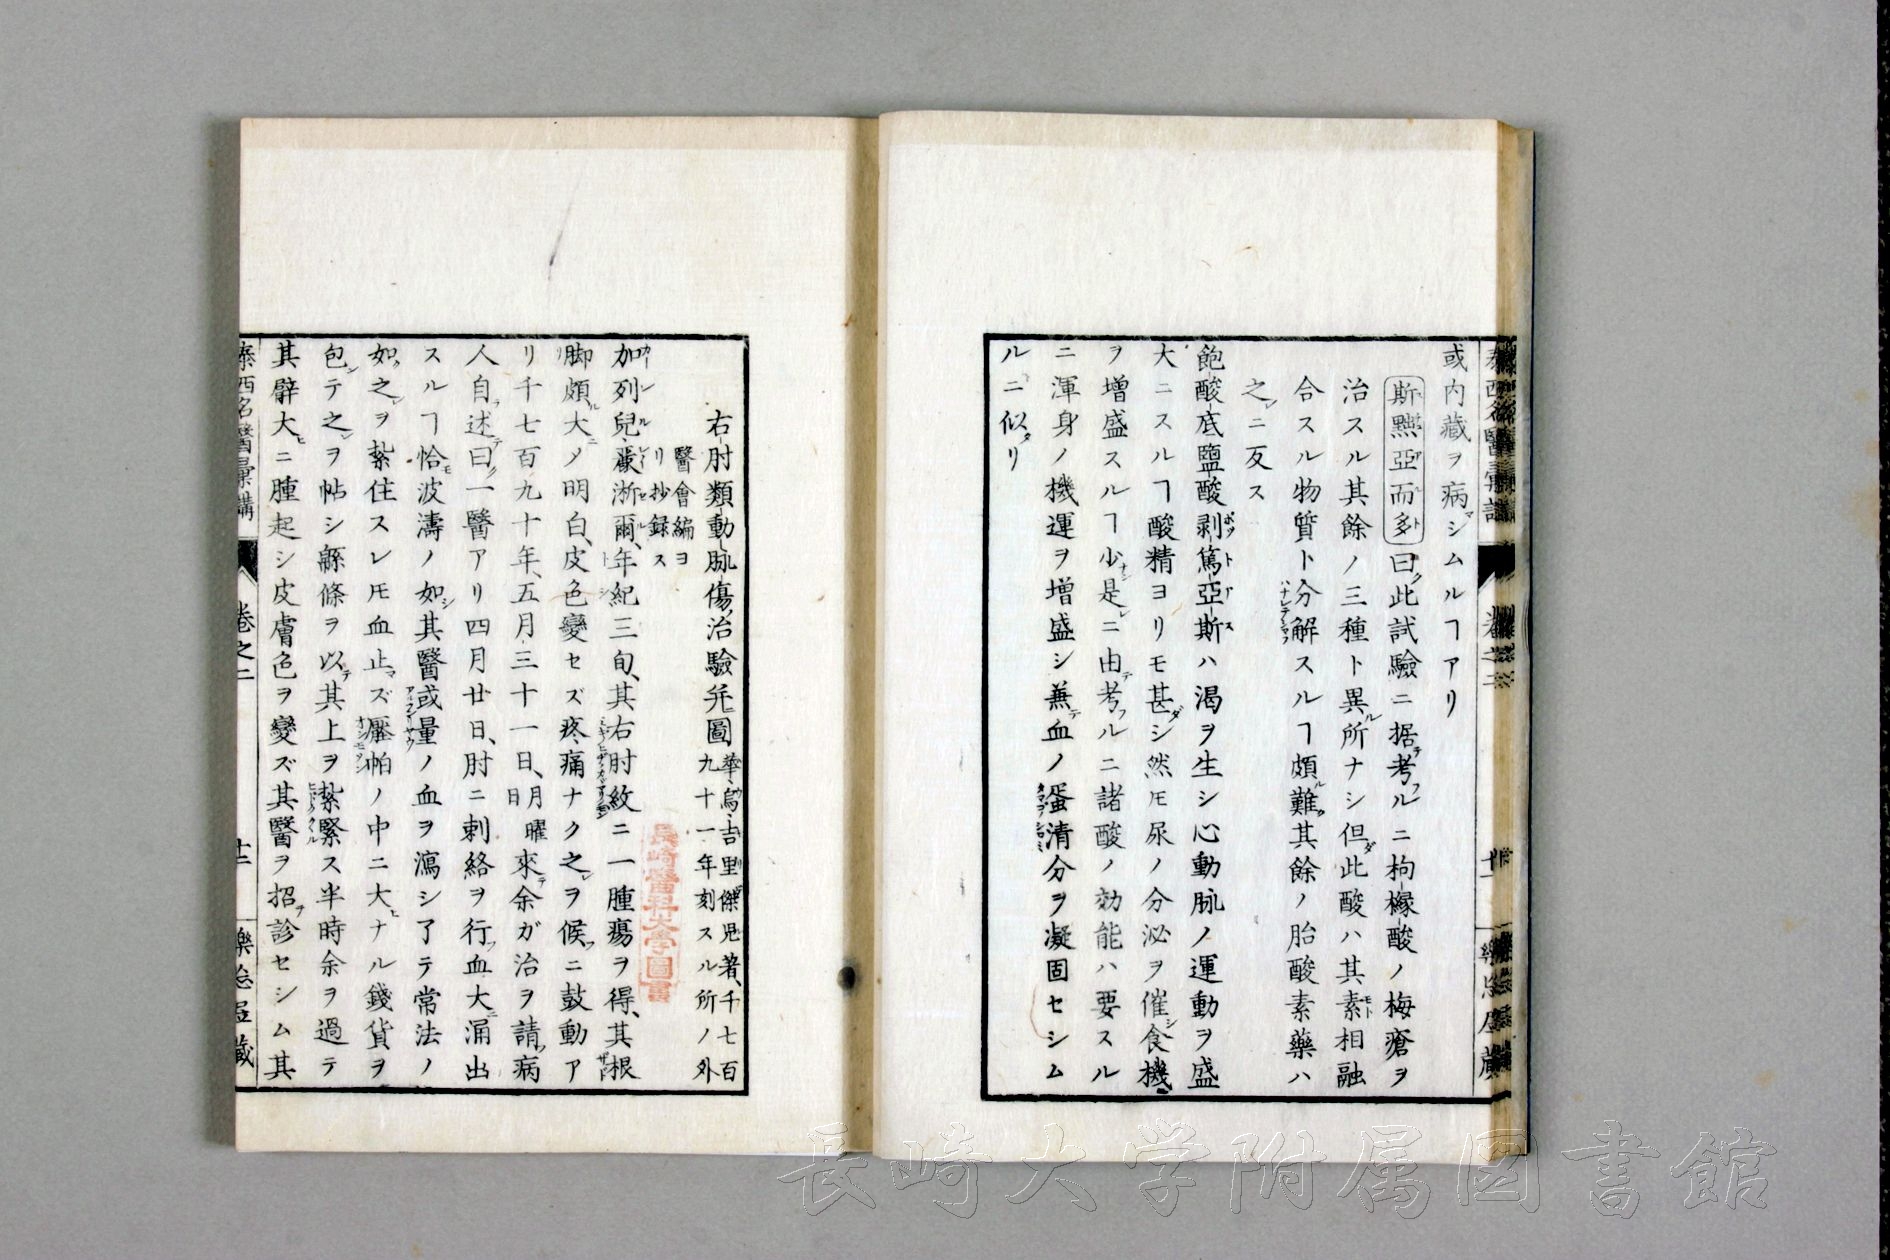 或内藏ヲ病マシムルヿアリ
斯㸃亞而多曰ク此試驗ニ据テ考フルニ枸櫞酸ノ梅瘡ヲ
治スル其餘ノ三種ト異ル所ナシ但ダ此酸ハ其素相融
合スル物質ト分解スルヿ頗ル難ク其餘ノ胎酸素藥ハ
之レニ反ス
飽酸底鹽酸剥篤亞斯ハ渇ヲ生シ心動脉ノ運動ヲ盛
大ニスルヿ酸精ヨリモ甚ダシ然𪜈尿ノ分泌ヲ催シ食機
ヲ増盛スルヿ少ナシ是レニ由テ考フルニ諸酸ノ効能ハ要スル
ニ渾身ノ機運ヲ增盛シ兼テ血ノ蛋清分ヲ凝固セシム
ルニ似タリ
右肘類動脉傷治驗并圖 華烏吉里傑児著千七百
九十一年刻スル所ノ外
醫會編ヨ
リ抄録ス
加列兒、嚴淅爾、年紀三旬、其右肘紋ニ一腫瘍ヲ得、其根
脚頗ル大ニノ明白、皮色變セズ疼痛ナク之レヲ候フニ鼓動ア
リ千七百九十年、五月三十一日、月曜日來テ余ガ治ヲ請フ病
人自ラ述テ曰ク一醫アリ四月廿日、肘ニ刺絡ヲ行フ血大ニ涌出
スルヿ恰モ波濤ノ如シ其醫或量ノ血ヲ瀉シ了テ常法ノ
如ク之レヲ紮住スレ𪜈血止マズ壓帕ノ中ニ大ヒナル錢貨ヲ
包ンテ之レヲ帖シ繇條ヲ以テ其上ヲ紮緊ス半時余ヲ過テ
其臂大ヒニ腫起シ皮膚色ヲ變ズ其醫ヲ招テ診セシム其
泰西名醫彙講
卷之二
十二
樂老居藏
長崎醫科大學圖書
長崎大学附属図書館